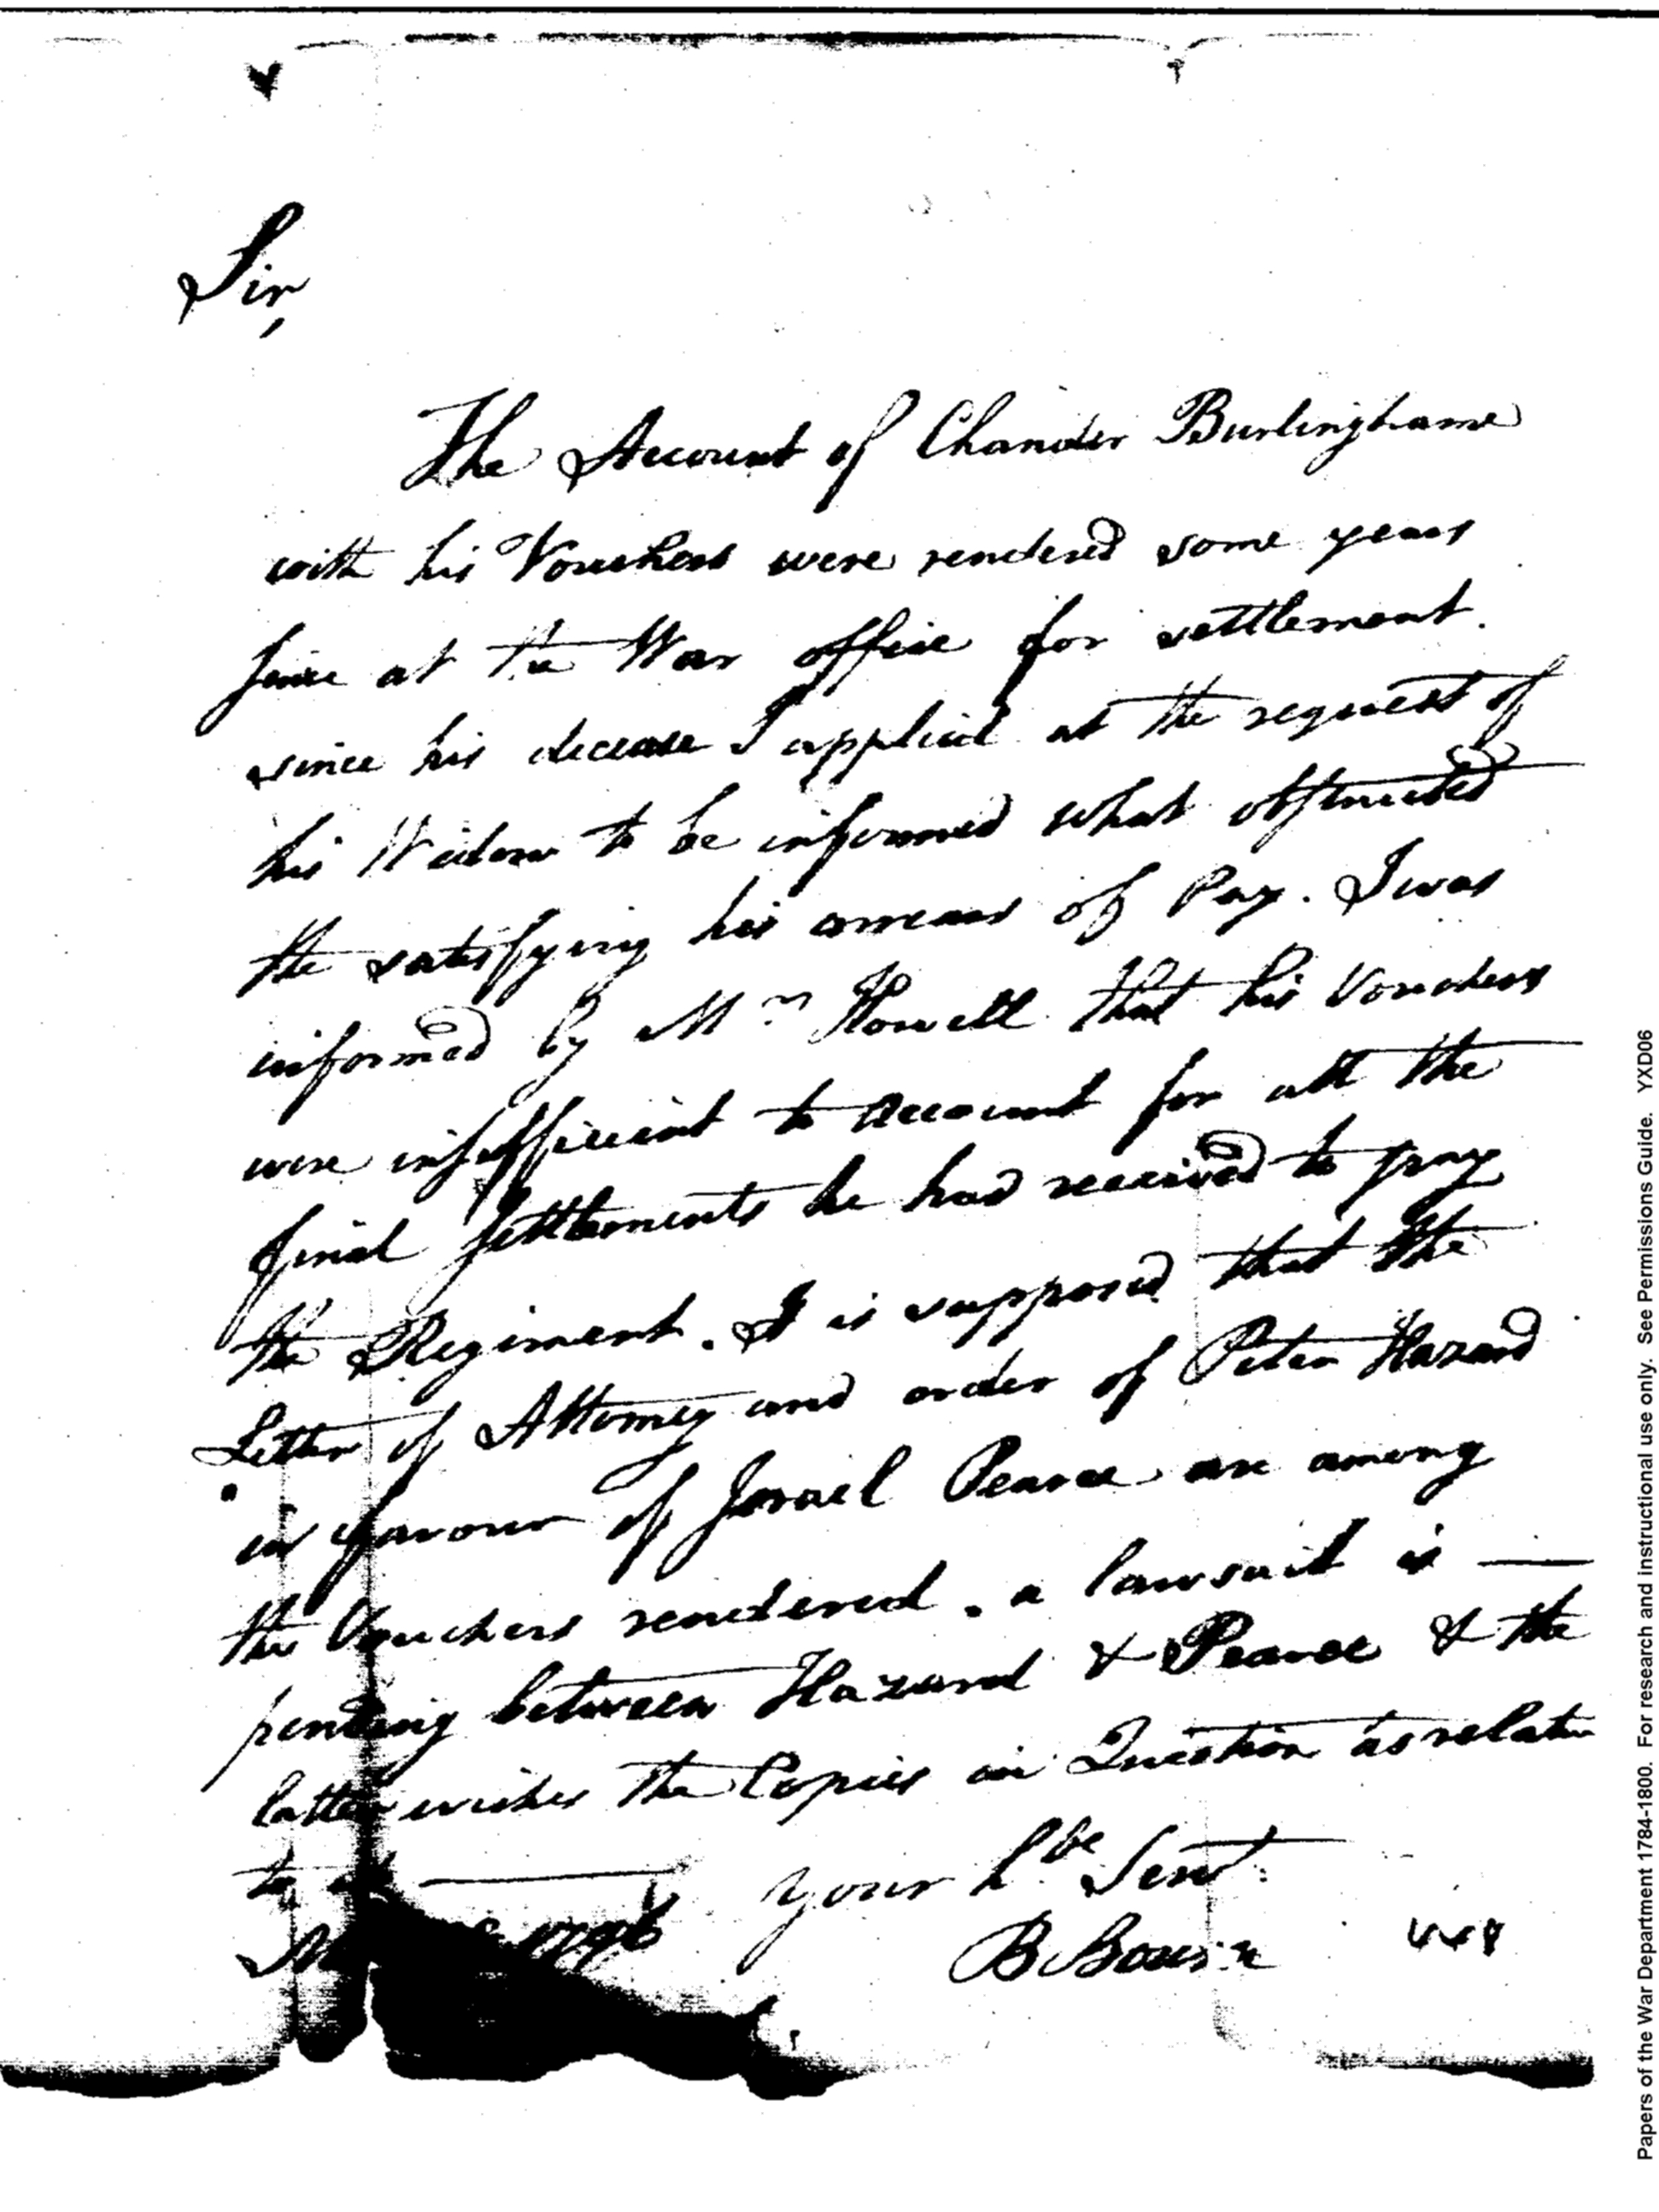 Sir,
The Account of Chander Burlinghame
with his Vouchers were rendered some years
since at the War office for settlement.
since his decease I applied at the request of
his Widow to be informed what obstructed
the satisfying his arrears of Pay. I was
informed by Mr Howell that his Vouchers
were insufficient to account for all the
final settlements he had received to pay
the Regiment. It is supposed that the
Letter of Attorney and order of Peter Hazard
in favour of Israel Pearce are among
the Vouchers rendered. a lawsuit is —
pending between Hazard & Pearce & the
latter wishes the Copies in Question as relate
to
your hbe Servt.
B Bourn
1796
Papers of the War Department 1784-1800. For research and instructional use only. See Permissions Guide. YXD06